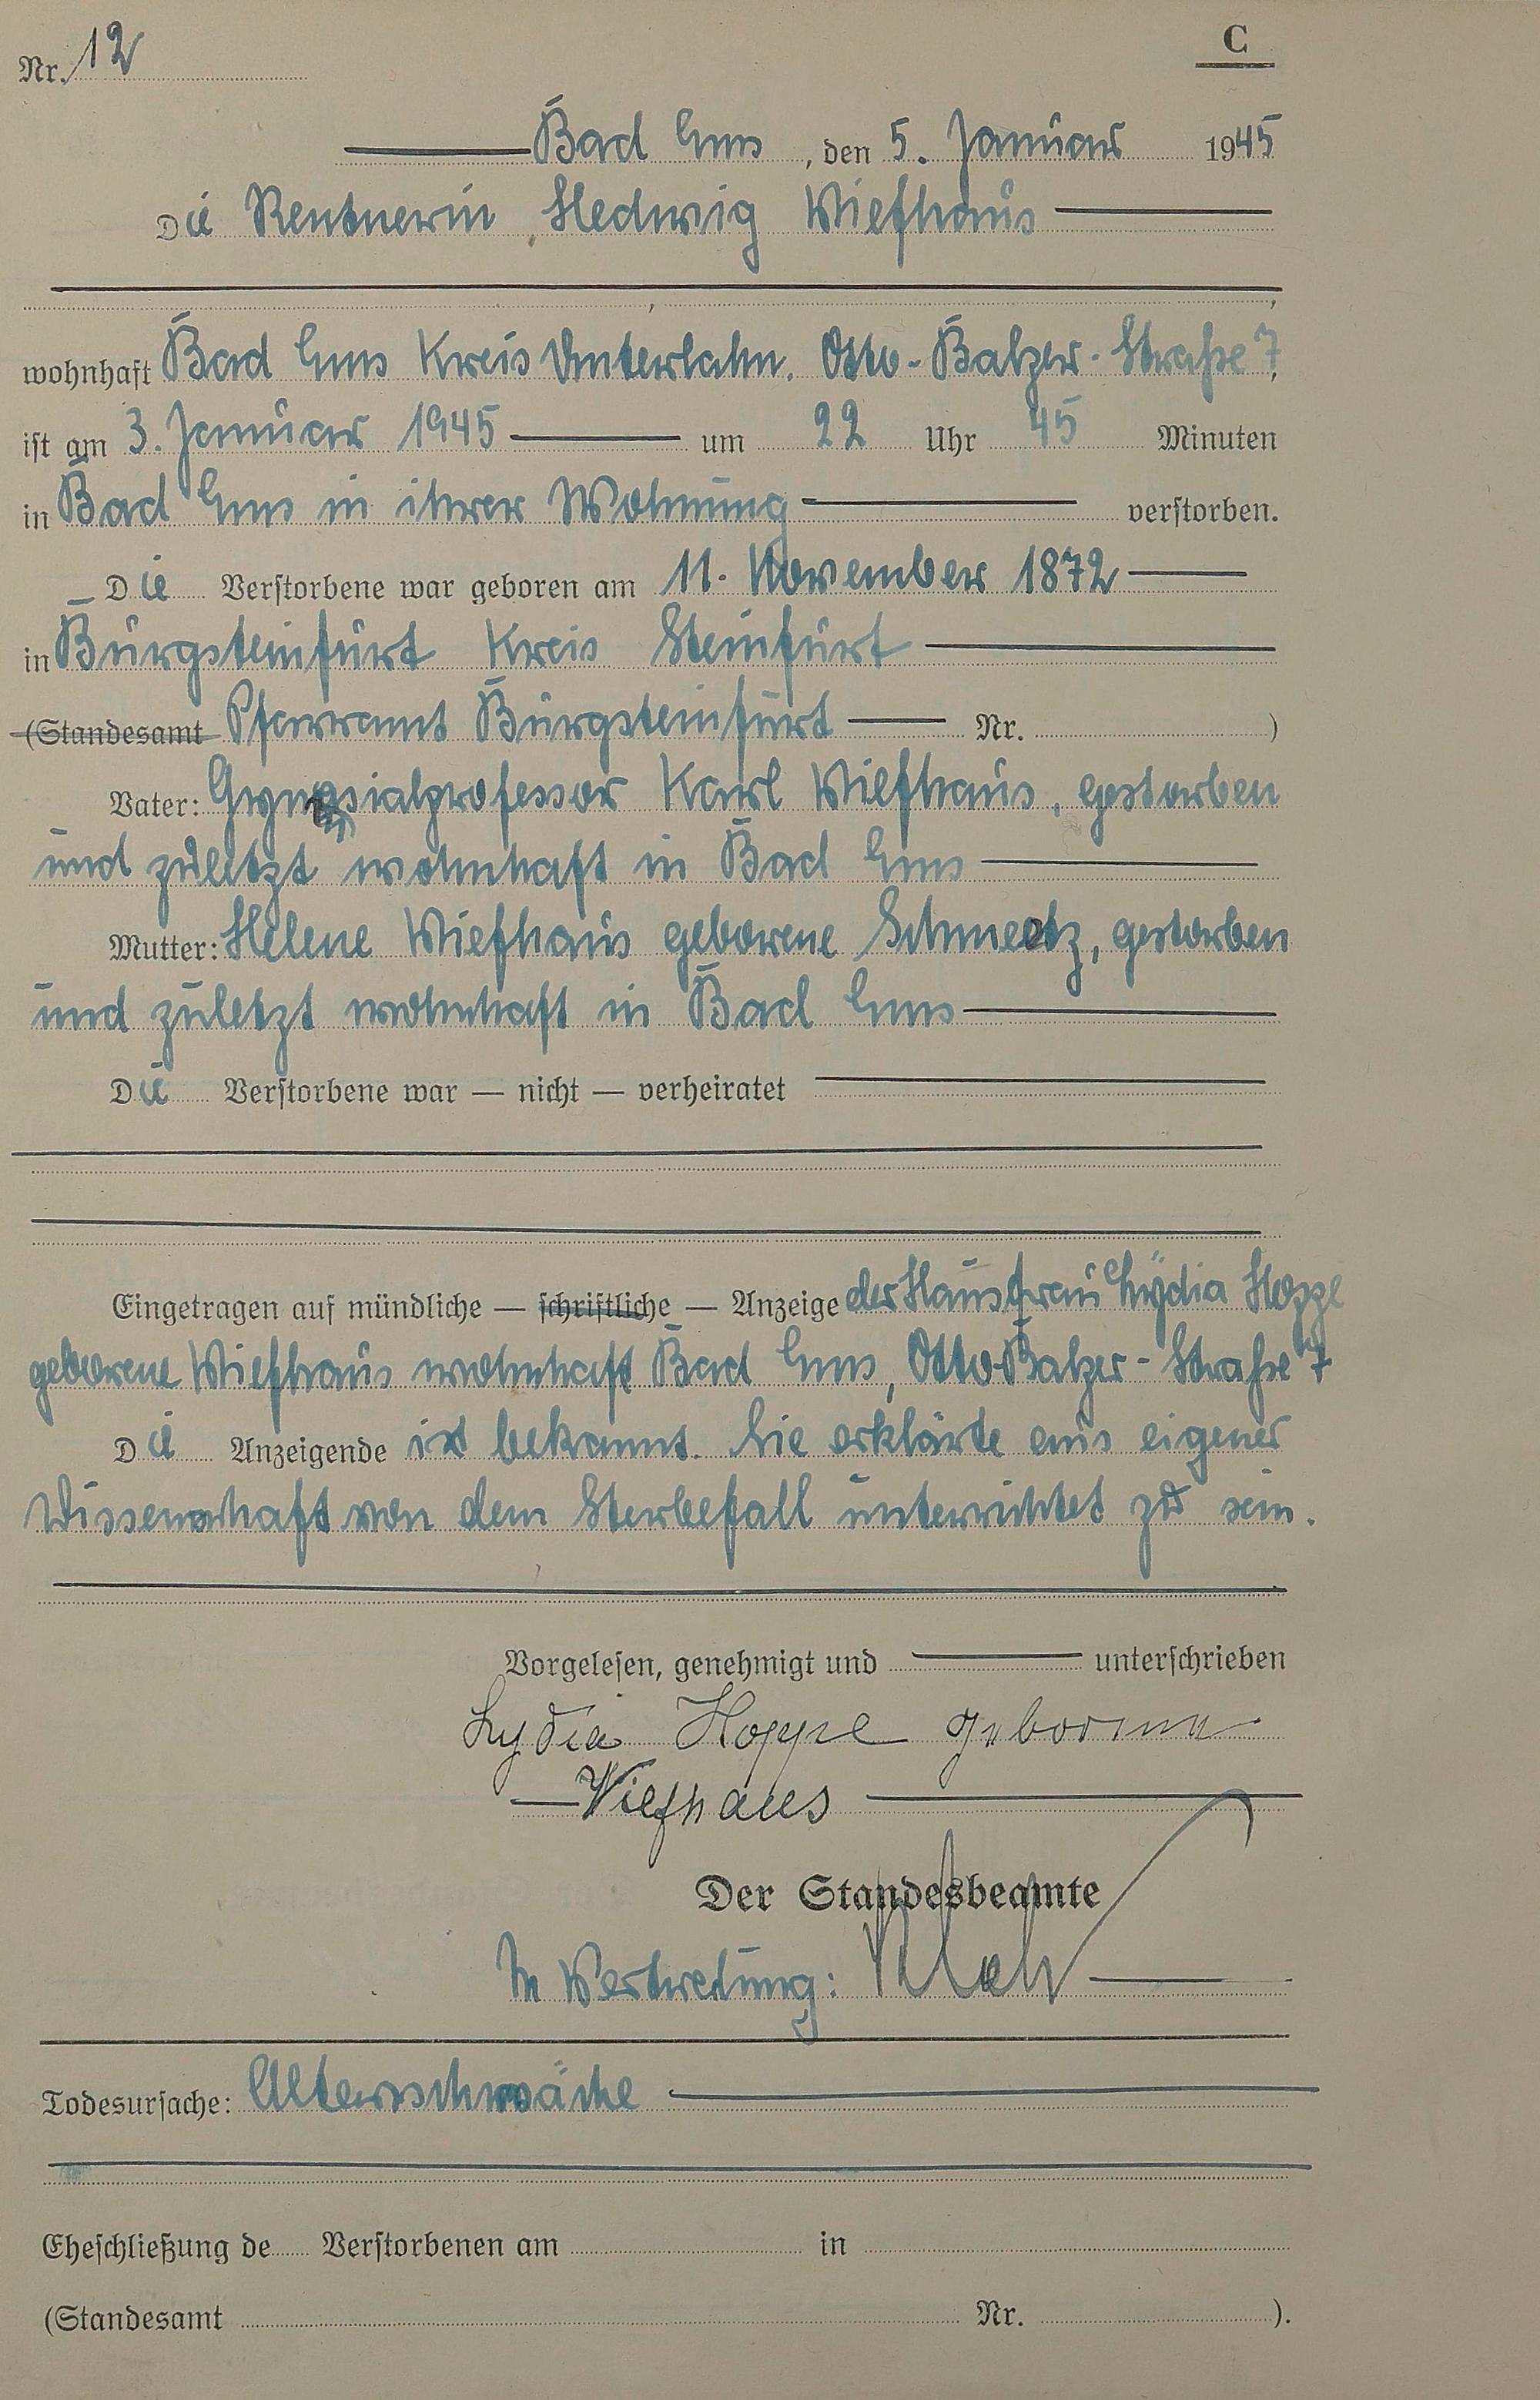 C
Nr. 12
Bad Ems, den 5. Januar 1945
Die Rentnerin, Hedwig Viefhaus
wohnhaft Bad Ems Kreis Unterlahn, Otto-Balzer-Straße 7,
ist am 3. Januar 1945 um 22 Uhr 45 Minuten
in Bad Ems in ihrer Wohnung verstorben.
Die Verstorbene war geboren am 11. November 1872
in Burgsteinfurt Kreis Steinfurt
(Standesamt Pfarramt Burgsteinfurt Nr. )
Vater: Gymnasialprofessor Karl Viefhaus, gestorben
und zuletzt wohnhaft in Bad Ems
Mutter: Helene Viefhaus geborene Schmeetz, gestorben
und zuletzt wohnhaft in Bad Ems
Die Verstorbene war — nicht — verheiratet
Eingetragen auf mündliche — schriftliche — Anzeige der Hausfrau Lydia Hoppe
geborene Viefhaus wohnhaft Bad Ems, Otto-Balzer-Straße 7
Die Anzeigende ist bekannt. Sie erklärte aus eigener
Wissenschaft von dem Sterbefall unterrichtet zu sein.
Vorgelesen, genehmigt und unterschrieben
Lydia Hoppe geborene
Viefhaus
Der Standesbeamte
In Vertretung:
Todesursache: Altersschwäche
Eheschließung de Verstorbenen am in
(Standesamt Nr. ).